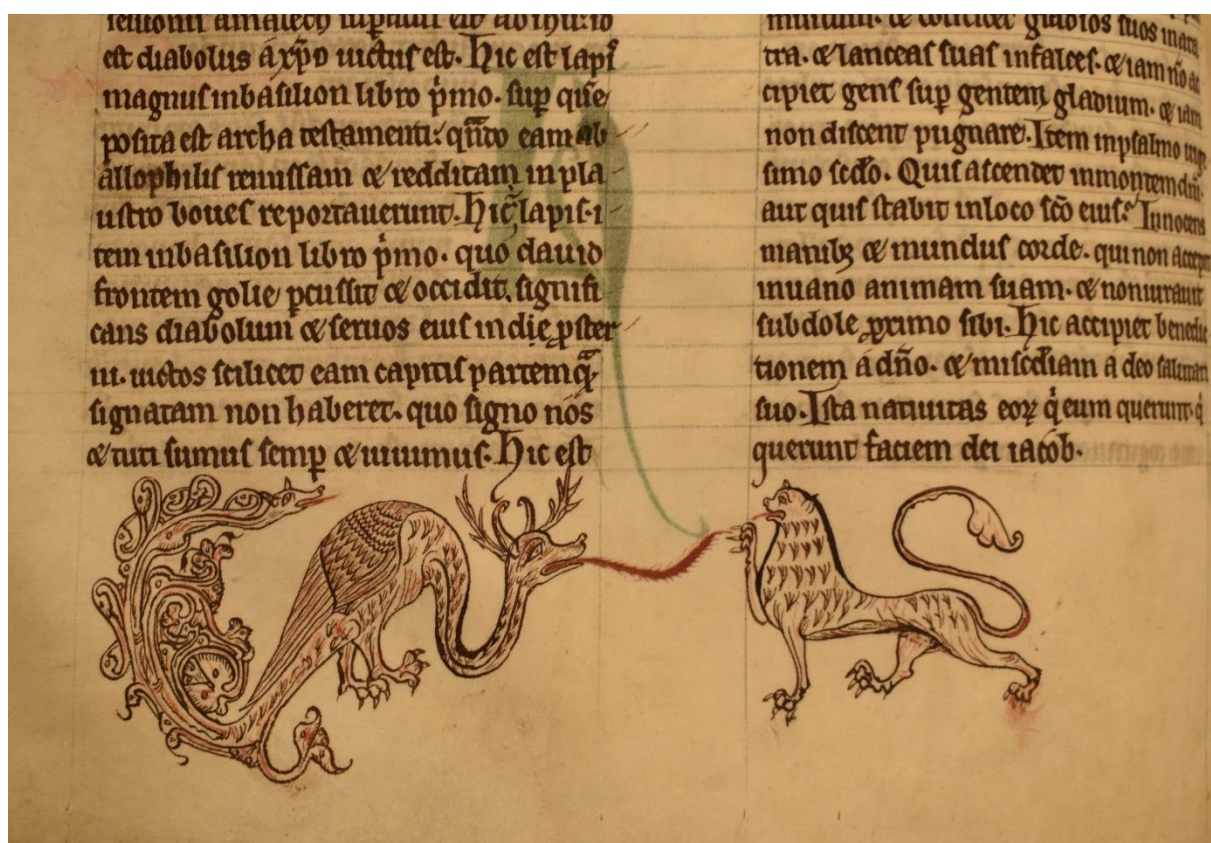 est diabolus a xp̄o uictus est. Hic est lapi
magnus in basilion libro p̍mo. sup quē
posita est archa testamenti: qn̄do eam ab
allophilis remissam ⁊ redditam in pla
ustro boues reportauerunt. Hic lapis. i
tem in basilion libro p̍mo. quo dauid
frontem golie pcussit ⁊ occidit. signifi
cans diabolum ⁊ seruos eius in die pster
ni. uictos scilicet eam capitis partem
signatam non haberet. quo signo nos
⁊ tuti sumus semp ⁊ uiuimus. Hic est
mundum. ⁊ gladios suos in ara
tra. ⁊ lanceas suas in falces. ⁊ iam nō ac
cipiet gens sup gentem gladium. ⁊ iam
non discent pugnare. Item in psalmo
simo scđo. Quis ascendet in montem dn̄i
aut quis stabit in loco sc̄o eius. Innocens
manibꝫ ⁊ mundus corde. qui non accepit
in uano animam suam. ⁊ non iurauit
subdole proximo sibi. Hic accipiet benedic
tionem a dn̄o. ⁊ mis̄cdiam a deo salutari
suo. Ista natiuitas eoꝝ q̍ eum querunt. q̍
querunt faciem dei iacob.